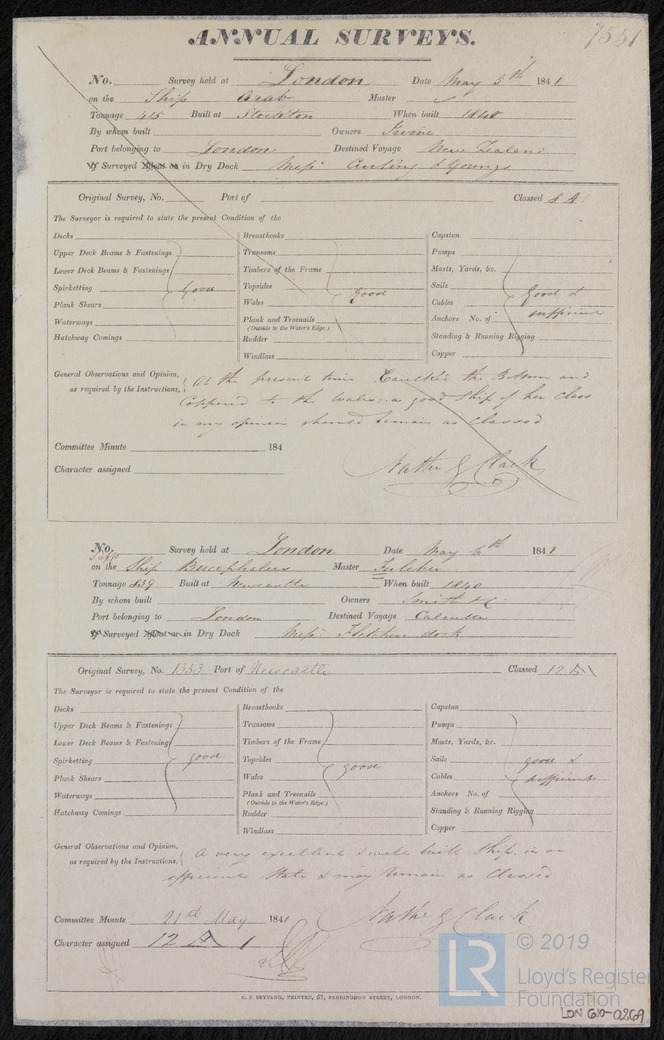 ANNUAL SURVEYS.
7551
No. Survey held at London Date May 5th 1841
on the Ship Arab Master ✓
Tonnage 415 Built at Stockton When built 1840
By whom built Owners Irvine
Port belonging to London Destined Voyage New Zealand
If Surveyed Afloat or in Dry Dock Messrs Curling & Youngs
Original Survey, No. Port of Classed A1
The Surveyor is required to state the present Condition of the
Decks
Upper Deck Beams & Fastenings
Lower Deck Beams & Fastenings
Spirketting good
Plank Shears
Waterways
Hatchway Comings
Breasthooks
Transoms
Timbers of the Frame
Topsides good
Wales
Plank and Treenails
(Outside to the Water's Edge.)
Rudder
Windlass
Capstan
Pumps
Masts, Yards, &c.
Sails good &
Cables sufficient
Anchors No. of
Standing & Running Rigging
Copper
General Observations and Opinion,
as required by the Instructions,
At the present time Caulked the Bottom and
Coppered to the Wales: a good Ship of her Class
in my opinion should remain as Classed
Committee Minute 184
Character assigned
Nathl G Clark
No. Survey held at London Date May 6th 1841
on the Ship Bucephalus Master Fulcher
Tonnage 839 Built at Newcastle When built 1840
By whom built Owners Smith & C
Port belonging to London Destined Voyage Calcutta
If Surveyed Afloat or in Dry Dock Messrs Fletchers dock
Original Survey, No. 1353 Port of Newcastle Classed 12 A1
The Surveyor is required to state the present Condition of the
Decks
Upper Deck Beams & Fastenings
Lower Deck Beams & Fastenings
Spirketting good
Plank Shears
Waterways
Hatchway Comings
Breasthooks
Transoms
Timbers of the Frame
Topsides good
Wales
Plank and Treenails
(Outside to the Water's Edge.)
Rudder
Windlass
Capstan
Pumps
Masts, Yards, &c.
Sails good &
Cables sufficient
Anchors No. of
Standing & Running Rigging
Copper
General Observations and Opinion,
as required by the Instructions,
A very excellent & well built Ship in an
efficient State & may remain as Classed
Committee Minute 21st May 1841
Character assigned 12 A 1
Nathl G Clark
C. F. SEYFANG, PRINTER, 57, FARRINGDON STREET, LONDON.
LR © 2019
Lloyd's Register
Foundation
LON 610-0269